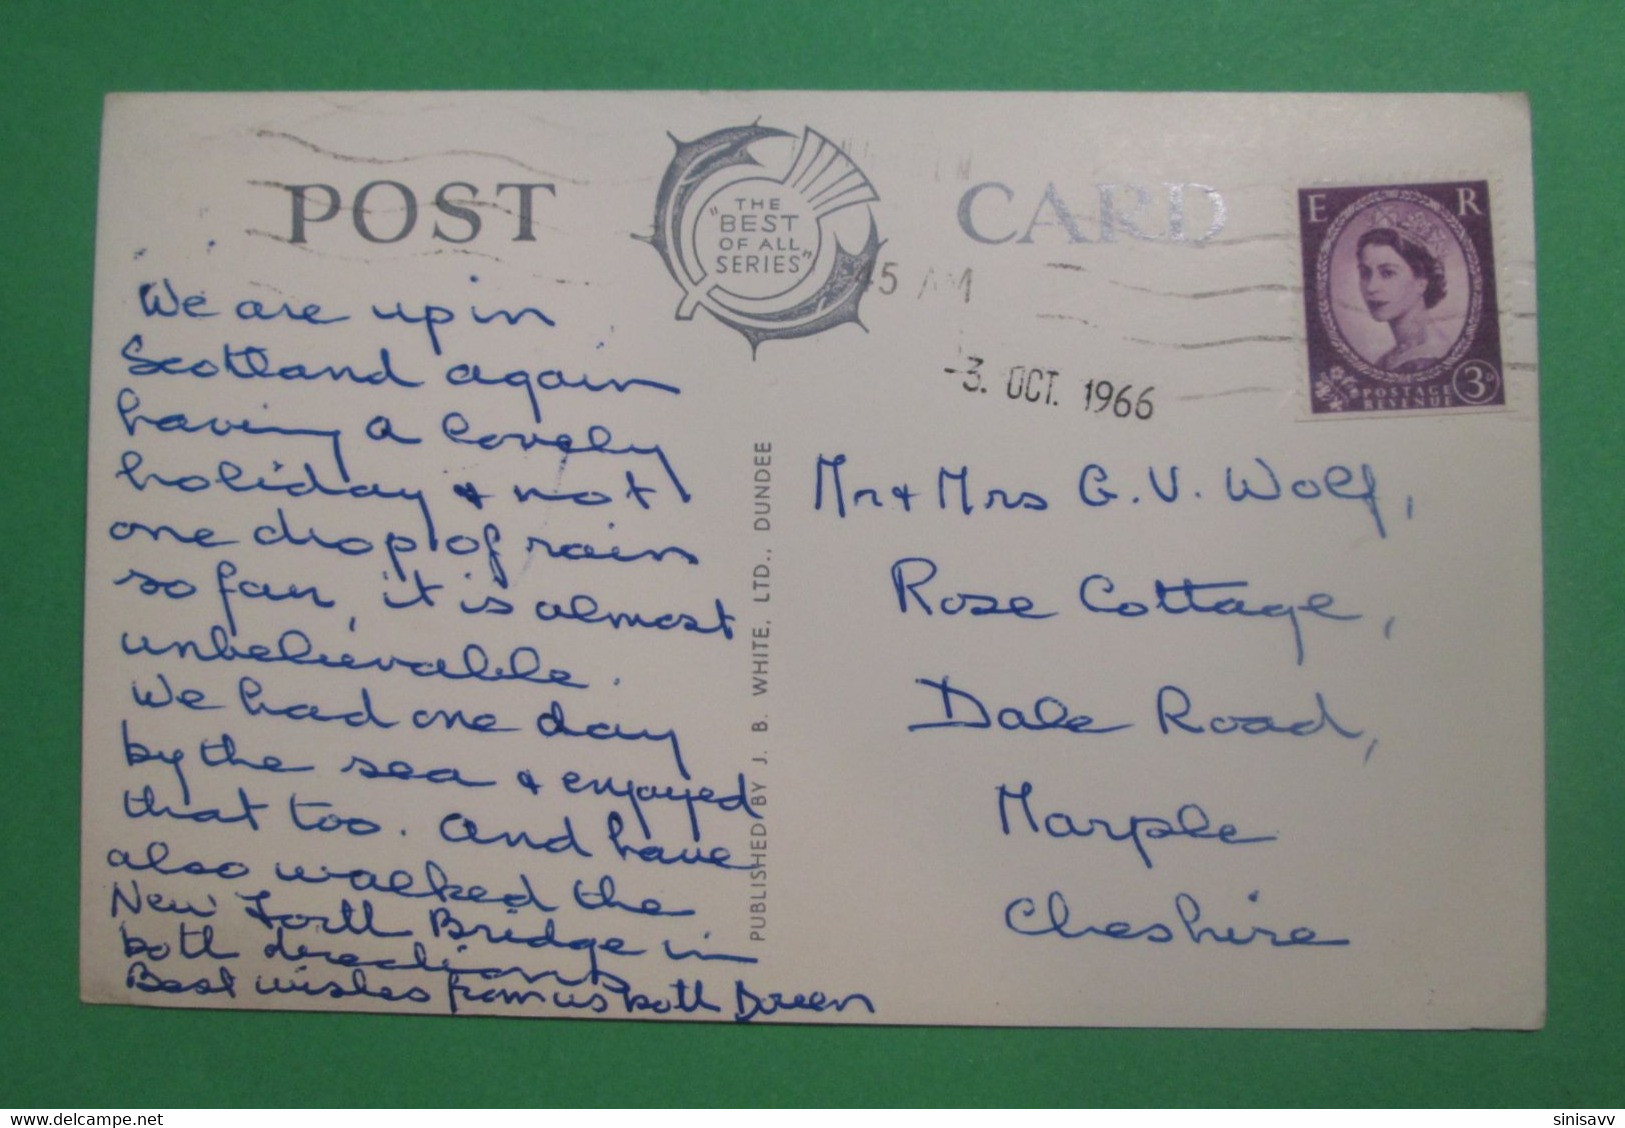 POST CARD
THE
"BEST
OF ALL
SERIES"
45 AM
-3. OCT. 1966
E R
POSTAGE
REVENUE
3D
We are up in
Scotland again
having a lovely
holiday & not
one drop of rain
so far, it is almost
unbelievable.
We had one day
by the sea & enjoyed
that too. And have
also walked the
New Forth Bridge in
both directions
Best wishes from us both Doreen
PUBLISHED BY J. B. WHITE, LTD., DUNDEE
Mr & Mrs G. V. Wolf,
Rose Cottage,
Dale Road,
Marple
Cheshire
delcampe.net
sinisavv